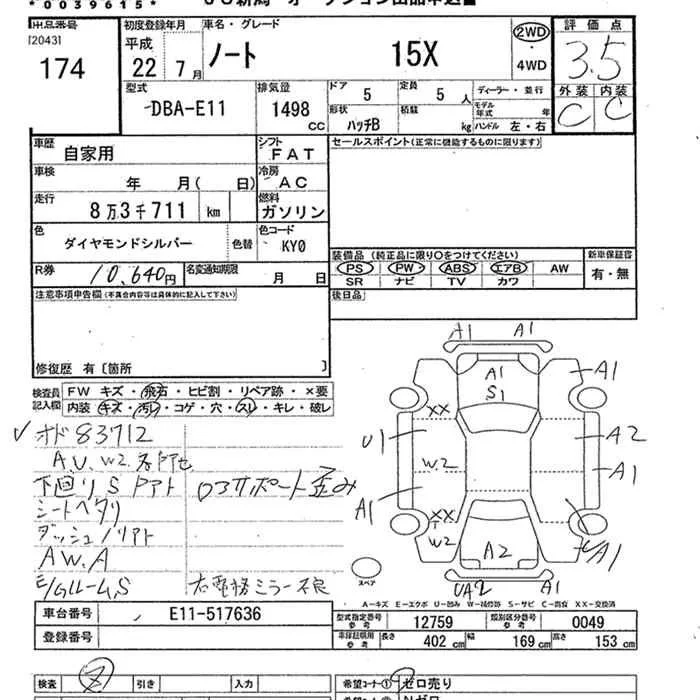 *0039615*
出品番号
[2043]
174
初度登録年月
平成
22 7月
車名・グレード
ノート 15X
2WD
・
4WD
評価点
3.5
外装 内装
C C
型式
DBA-E11
排気量
1498
CC
ドア
5
定員
5 人
形状
ハッチB
積載
kg
ディーラー・並行
モデル年式 年
ハンドル 左・右
車歴
自家用
シフト
FAT
車検
年 月( 日)
冷房
AC
走行
8万3千711 km
燃料
ガソリン
色
ダイヤモンドシルバー
色替
色コード
KY0
R券
10,640円
名変通知期限
月 日
セールスポイント(正常に機能するものに限ります)
装備品(純正品に限り○をつけてください)
PS PW ABS エアB AW
SR ナビ TV カワ
新車保証書
有・無
後日品
注意事項申告欄(不具合内容等は具体的に記入して下さい)
修復歴 有〔箇所 〕
検査員記入欄
FW キズ・飛石・ヒビ割・リペア跡・×要
内装・キズ・汚れ・コゲ・穴・スレ・キレ・破レ
✓オド83712
A.U.W2.各所也
下回りSアト
シートヘタリ
ダッシュノリアト
AW.A
E/Gルーム S
ロアサポート歪み
右電格ミラー不良
A1 A1
A1
S1
A1
XX
U1
A2
W.2
A1
A1
XX
W2
A2
A1
UA2 A1
スペア
A-キズ E-エクボ U-凹み W-補修跡 S-サビ C-腐食 XX-交換済
車台番号
E11-517636
登録番号
型式指定番号
参考
12759
類別区分番号
参考
0049
車庫証明用
参考
長さ
402 cm
幅
169 cm
高さ
153 cm
検査
引き
入力
希望コーナー①
ゼロ売り
希望コーナー②